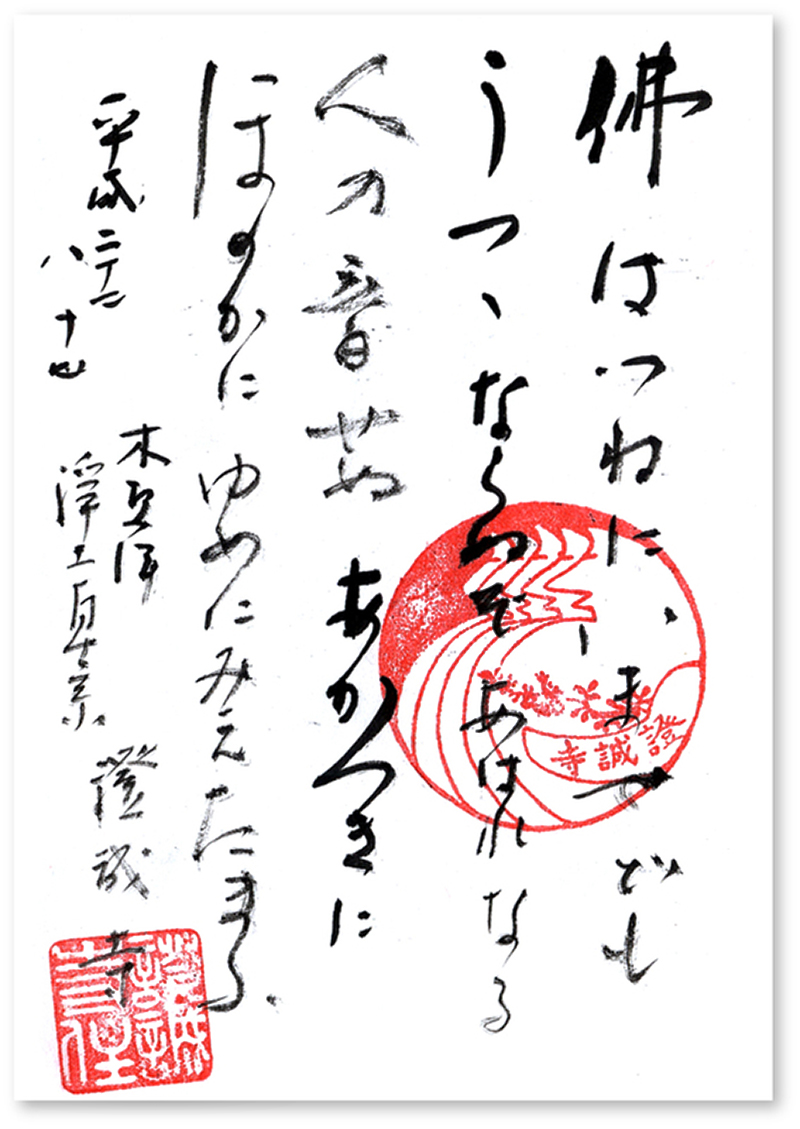 佛はつねに、ませども
うつゝならぬぞあはれなる
人の音せぬあかつきに
ほのかにゆめにみえたまふ
平成二十二
八 十四
木辺派
浄土真宗
證誠寺
證誠寺